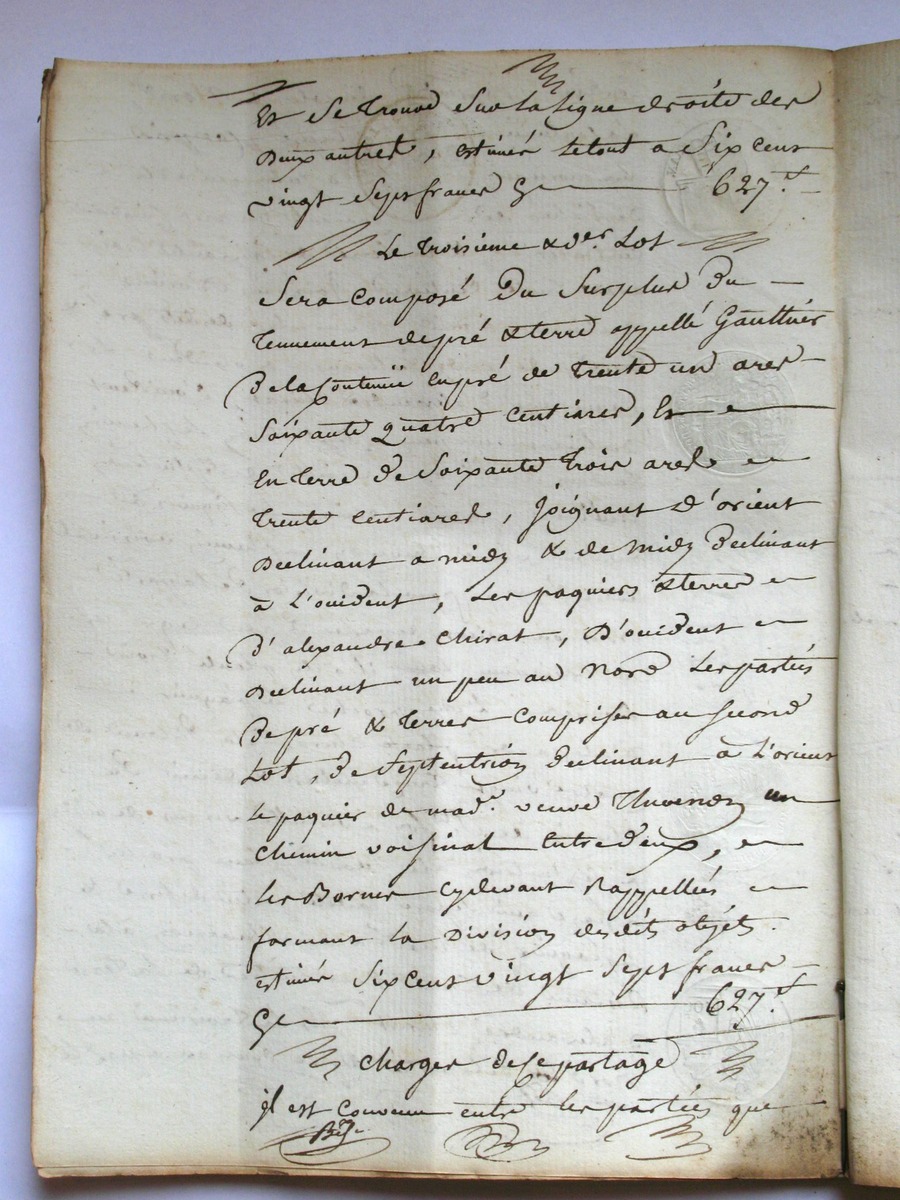 Et Se trouve Sur la ligne droite des
Deux autres, estimés le tout a Six cent
vingt Sept francs Cy 627.f
Le troisieme & der. Lot
Sera composé Du Surplus Du
tennement de pré & terre appellé Gaulthier
De la Contenüe en pré de trente un ares
Soixante quatre Centiares, Et
En terre De Soixante trois ares
trente Centiares, joignant d'orient
Declinant a midy & de midy Declinant
à L'occident, Les paquiers & terres
D'alexandre Chirat, D'occident
Declinant un peu au Nord Les parties
De pré & terres comprises au Second
Lot, De Septentrion Declinant à L'orient
Le paquier de mad.e veuve un
Chemin voisinal Entre Deux,
Les Bornes cy devant rappellées
formant la Division desdits objets.
estimés Six cent vingt Sept francs
Cy 627.f
Charges de ce partage
il est Convenu entre les parties que